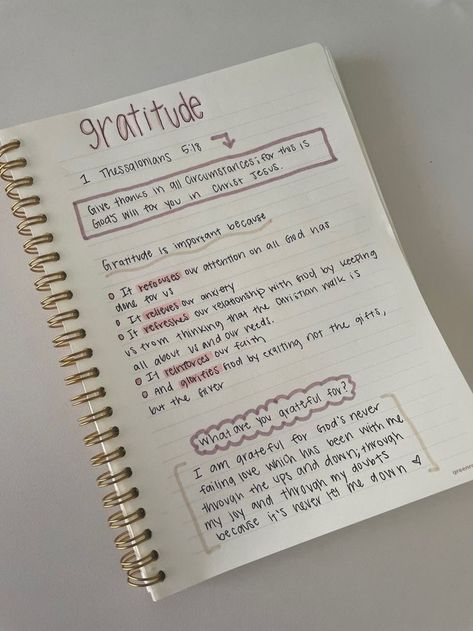 gratitude
1 Thessalonians 5:18
Give thanks in all circumstances; for this is
God's will for you in Christ Jesus.
Gratitude is important because
It refocuses our attention on all God has
done for us
It relieves our anxiety
It refreshes our relationship with God by keeping
us from thinking that the Christian walk is
all about us and our needs.
It reinforces our faith
And glorifies God by exalting not the gifts,
but the giver
What are you grateful for?
I am grateful for God's never
failing love, which has been with me
through the ups and down; through
my joy and through my doubts
because it's never let me down ♡